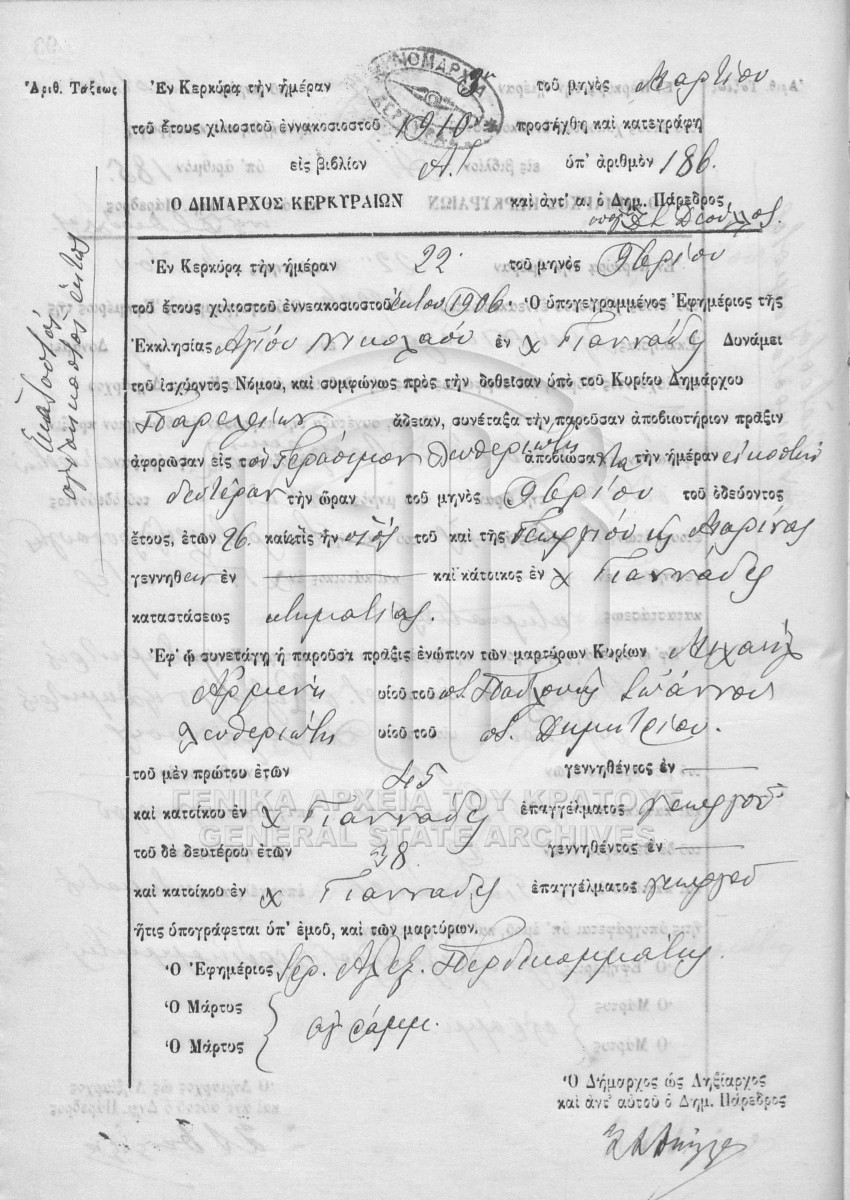 Ἀριθ. Τάξεως
Ἐν Κερκύρᾳ τὴν ἡμέραν 3 τοῦ μηνὸς Μαρτίου
τοῦ ἔτους χιλιοστοῦ ἐννακοσιοστοῦ 1910 προσήχθη καὶ κατεγράφη
εἰς βιβλίον Α. ὑπ' ἀριθμὸν 186.
Ὁ ΔΗΜΑΡΧΟΣ ΚΕΡΚΥΡΑΙΩΝ καὶ ἀντ' α. ὁ Δημ. Πάρεδρος
Ἑκατοστός
ὀγδοηκοστός ἕκτος
Ἐν Κερκύρᾳ τὴν ἡμέραν 22 τοῦ μηνὸς 9βρίου
τοῦ ἔτους χιλιοστοῦ ἐννεακοσιοστοῦ ἕκτου 1906. Ὁ ὑπογεγραμμένος Ἐφημέριος τῆς
Ἐκκλησίας Ἁγίου Νικολάου ἐν χ Γιαννάδες Δυνάμει
τοῦ ἰσχύοντος Νόμου, καὶ συμφώνως πρὸς τὴν δοθεῖσαν ὑπὸ τοῦ Κυρίου Δημάρχου
Παρελίων ἄδειαν, συνέταξα τὴν παροῦσαν ἀποβιωτήριον πρᾶξιν
ἀφορῶσαν εἰς τὸν Γεράσιμον Λευθεριώτη ἀποβιώσαντα τὴν ἡμέραν εἰκοστὴν
δευτέραν τὴν ὥραν τοῦ μηνὸς 9βρίου τοῦ ὁδεύοντος
ἔτους, ἐτῶν 26. καὶ τις ἦν υἱὸς τοῦ καὶ τῆς Γεωργίου κ Μαρίνας
γεννηθεὶς ἐν — καὶ κάτοικος ἐν χ Γιαννάδες
καταστάσεως κτηματίας.
Ἐφ' ᾧ συνετάγη ἡ παροῦσα πρᾶξις ἐνώπιον τῶν μαρτύρων Κυρίων Μιχαὴλ
Ἀρμένη υἱοῦ τοῦ ποτ. Παύλου κ Ἰωάννου
Λευθεριώτη υἱοῦ τοῦ ποτ. Δημητρίου.
τοῦ μὲν πρώτου ἐτῶν 45 γεννηθέντος ἐν —
καὶ κατοίκου ἐν χ Γιαννάδες ἐπαγγέλματος γεωργοῦ
ΓΕΝΙΚΑ ΑΡΧΕΙΑ ΤΟΥ ΚΡΑΤΟΥΣ
GENERAL STATE ARCHIVES
τοῦ δὲ δευτέρου ἐτῶν 38 γεννηθέντος ἐν —
καὶ κατοίκου ἐν χ Γιαννάδες ἐπαγγέλματος γεωργοῦ
ἥτις ὑπογράφεται ὑπ' ἐμοῦ, καὶ τῶν μαρτύρων.
Ὁ Ἐφημέριος Ἱερ. Ἀλεξ. Περδικομμάτης.
Ὁ Μάρτυς
Ὁ Μάρτυς ἀγράμμ.
Ὁ Δήμαρχος ὡς Ληξίαρχος
καὶ ἀντ' αὐτοῦ ὁ Δημ. Πάρεδρος